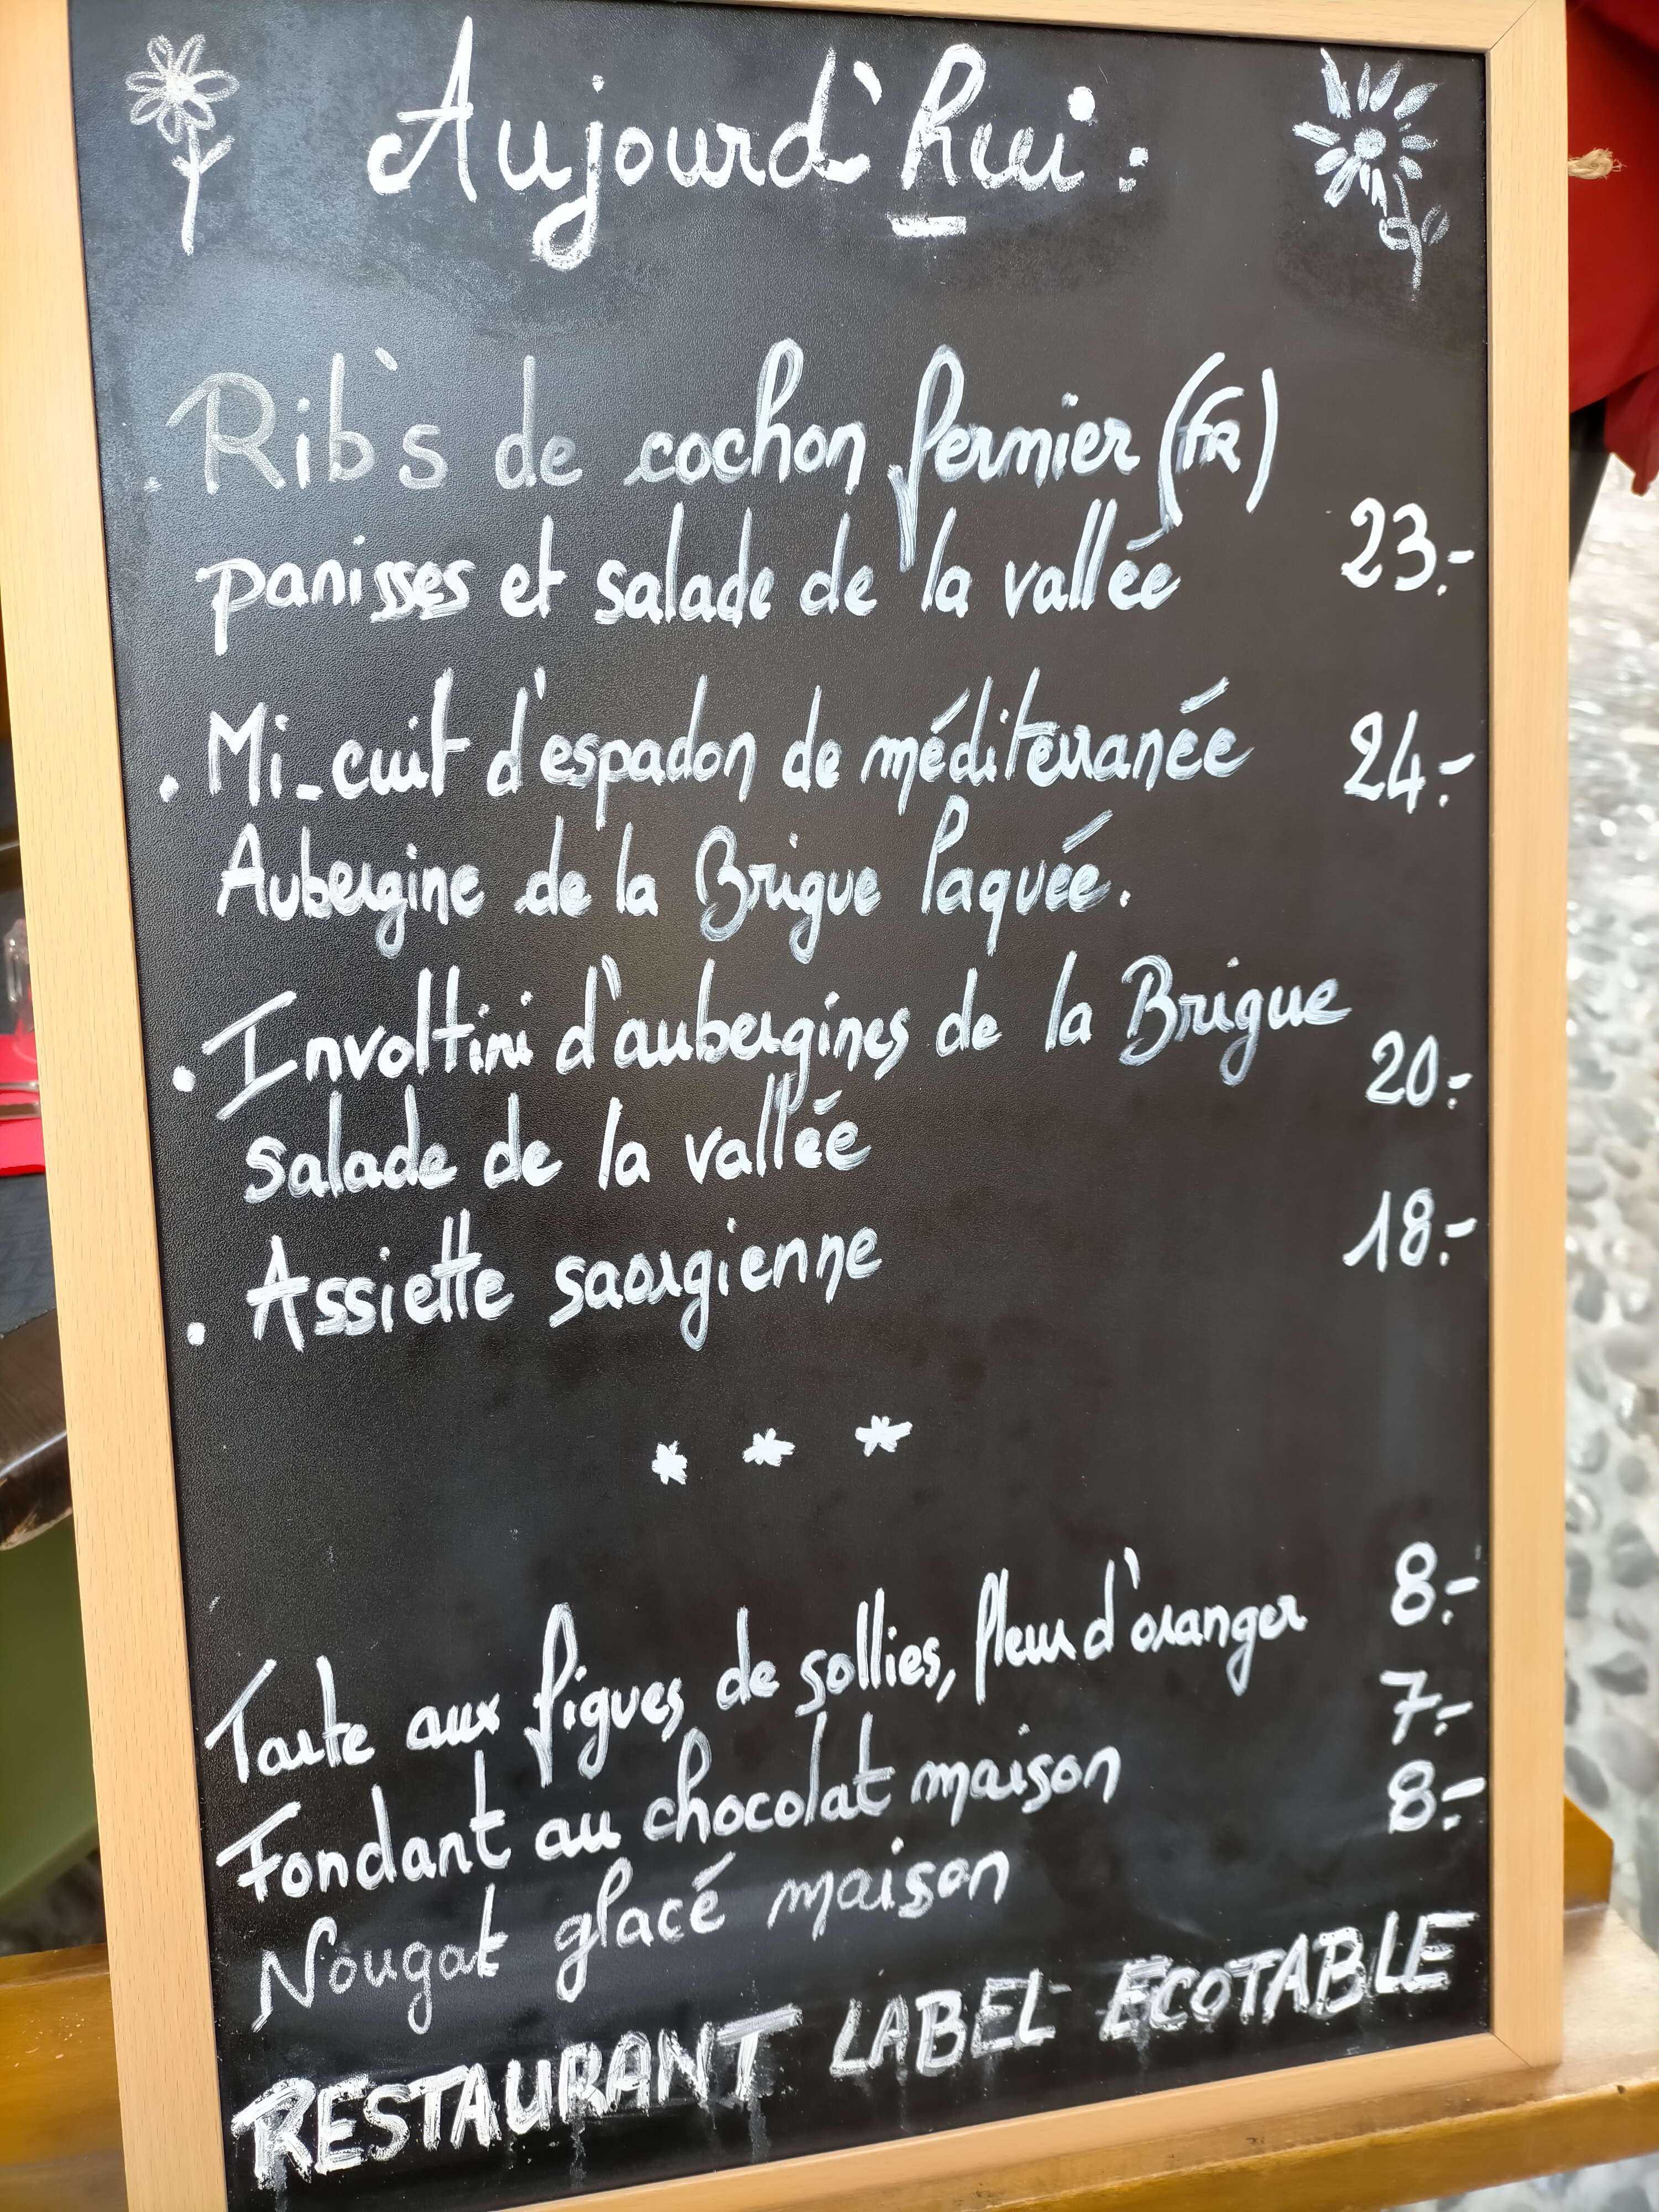 Aujourd'hui :
. Rib's de cochon fermier (FR)
panisses et salade de la vallée 23.-
. Mi-cuit d'espadon de méditerranée 24.-
Aubergine de la Brigue laquée.
. Involtini d'aubergines de la Brigue
salade de la vallée 20.-
. Assiette saorgienne 18.-
* * *
Tarte aux figues de sollies, fleur d'oranger 8.-
Fondant au chocolat maison 7.-
Nougat glacé maison 8.-
RESTAURANT LABEL ECOTABLE